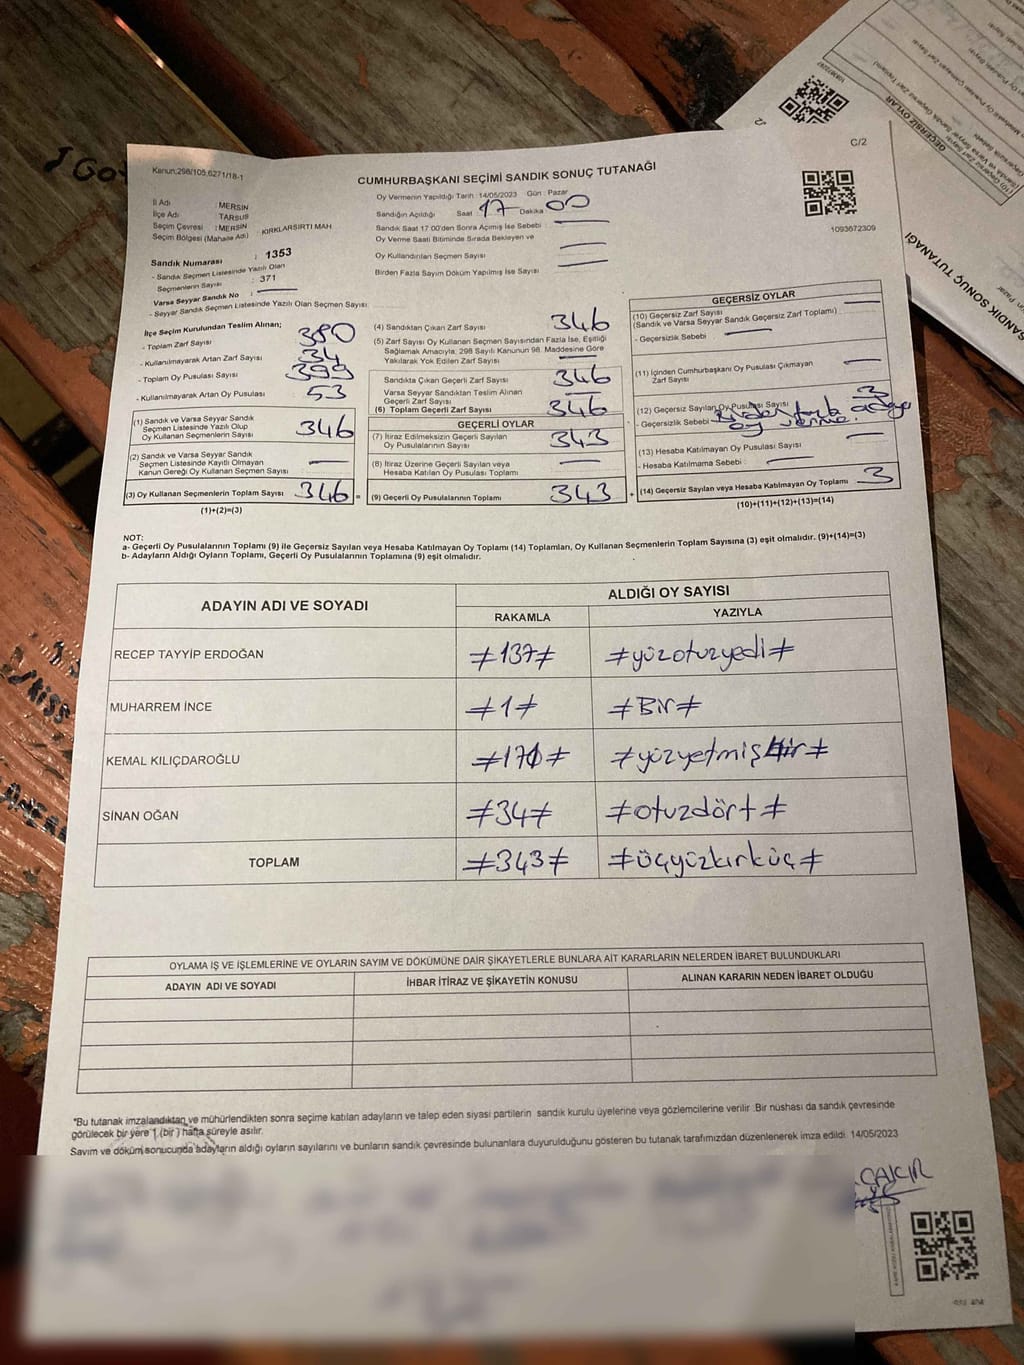 I Got
Kanun:298/105,6271/18-1
C/2
CUMHURBAŞKANI SEÇİMİ SANDIK SONUÇ TUTANAĞI
İl Adı : MERSİN
İlçe Adı : TARSUS
Seçim Çevresi : MERSİN
Seçim Bölgesi (Mahalle Adı) : KIRKLARSIRTI MAH
Oy Vermenin Yapıldığı Tarih : 14/05/2023 Gün : Pazar
Sandığın Açıldığı Saat 17 Dakika 00
Sandık Saat 17:00'den Sonra Açımış İse Sebebi :
Oy Verme Saati Bitiminde Sırada Bekleyen ve
Oy Kullandırılan Seçmen Sayısı :
Birden Fazla Sayım Döküm Yapılmış İse Sayısı :
1093672309
Sandık Numarası : 1353
- Sandık Seçmen Listesinde Yazılı Olan
Seçmenlerin Sayısı : 371
Varsa Seyyar Sandık No :
- Seyyar Sandık Seçmen Listesinde Yazılı Olan Seçmen Sayısı:
İlçe Seçim Kurulundan Teslim Alınan;
- Toplam Zarf Sayısı 380
- Kullanılmayarak Artan Zarf Sayısı 34
- Toplam Oy Pusulası Sayısı 399
- Kullanılmayarak Artan Oy Pusulası 53
(1) Sandık ve Varsa Seyyar Sandık
Seçmen Listesinde Yazılı Olup
Oy Kullanan Seçmenlerin Sayısı 346
(2) Sandık ve Varsa Seyyar Sandık
Seçmen Listesinde Kayıtlı Olmayan
Kanun Gereği Oy Kullanan Seçmen Sayısı
(3) Oy Kullanan Seçmenlerin Toplam Sayısı 346 =
(1)+(2)=(3)
(4) Sandıktan Çıkan Zarf Sayısı 346
(5) Zarf Sayısı Oy Kullanan Seçmen Sayısından Fazla İse, Eşitliği
Sağlamak Amacıyla; 298 Sayılı Kanunun 98. Maddesine Göre
Yakılarak Yok Edilen Zarf Sayısı
Sandıkta Çıkan Geçerli Zarf Sayısı 346
Varsa Seyyar Sandıktan Teslim Alınan
Geçerli Zarf Sayısı
(6) Toplam Geçerli Zarf Sayısı 346
GEÇERLİ OYLAR
(7) İtiraz Edilmeksizin Geçerli Sayılan
Oy Pusulalarının Sayısı 343
(8) İtiraz Üzerine Geçerli Sayılan veya
Hesaba Katılan Oy Pusulası Toplamı
(9) Geçerli Oy Pusulalarının Toplamı 343 +
GEÇERSİZ OYLAR
(10) Geçersiz Zarf Sayısı
(Sandık ve Varsa Seyyar Sandık Geçersiz Zarf Toplamı)
- Geçersizlik Sebebi :
(11) İçinden Cumhurbaşkanı Oy Pusulası Çıkmayan
Zarf Sayısı
(12) Geçersiz Sayılan Oy Pusulası Sayısı 3
- Geçersizlik Sebebi : Birden fazla adaya
oy verme.
(13) Hesaba Katılmayan Oy Pusulası Sayısı
- Hesaba Katılmama Sebebi :
(14) Geçersiz Sayılan veya Hesaba Katılmayan Oy Toplamı 3
(10)+(11)+(12)+(13)=(14)
NOT:
a- Geçerli Oy Pusulalarının Toplamı (9) ile Geçersiz Sayılan veya Hesaba Katılmayan Oy Toplamı (14) Toplamları, Oy Kullanan Seçmenlerin Toplam Sayısına (3) eşit olmalıdır. (9)+(14)=(3)
b- Adayların Aldığı Oyların Toplamı, Geçerli Oy Pusulalarının Toplamına (9) eşit olmalıdır.
ADAYIN ADI VE SOYADI
ALDIĞI OY SAYISI
RAKAMLA YAZIYLA
RECEP TAYYİP ERDOĞAN ≠137≠ ≠yüzotuzyedi≠
MUHARREM İNCE ≠1≠ ≠Bir≠
KEMAL KILIÇDAROĞLU ≠171≠ ≠yüzyetmişbir≠
SİNAN OĞAN ≠34≠ ≠otuzdört≠
TOPLAM ≠343≠ ≠üçyüzkırküç≠
OYLAMA İŞ VE İŞLEMLERİNE VE OYLARIN SAYIM VE DÖKÜMÜNE DAİR ŞİKAYETLERLE BUNLARA AİT KARARLARIN NELERDEN İBARET BULUNDUKLARI
ADAYIN ADI VE SOYADI İHBAR İTİRAZ VE ŞİKAYETİN KONUSU ALINAN KARARIN NEDEN İBARET OLDUĞU
*Bu tutanak imzalandıktan ve mühürlendikten sonra seçime katılan adayların ve talep eden siyasi partilerin sandık kurulu üyelerine veya gözlemcilerine verilir. Bir nüshası da sandık çevresinde
görülecek bir yere 1 (bir) hafta süreyle asılır.
Sayım ve döküm sonucunda adayların aldığı oyların sayılarını ve bunların sandık çevresinde bulunanlara duyurulduğunu gösteren bu tutanak tarafımızdan düzenlenerek imza edildi. 14/05/2023
ÇAKIR
GEÇERSİZ OYLAR
SANDIK SONUÇ TUTANAĞI
Pazar